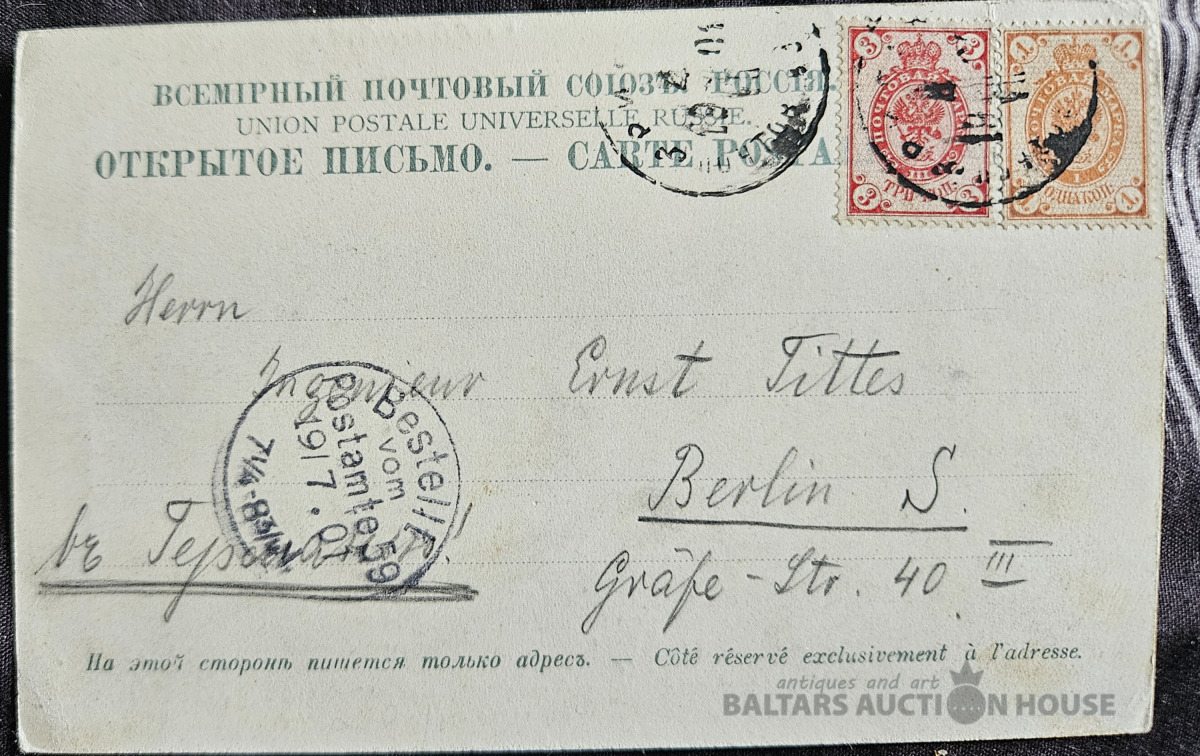 ВСЕМІРНЫЙ ПОЧТОВЫЙ СОЮЗЪ РОССІЯ.
UNION POSTALE UNIVERSELLE RUSSIE.
ОТКРЫТОЕ ПИСЬМО. — CARTE POSTA
3 3
ПОЧТОВАЯ МАРКА
ТРИ КОП.
3 3
1 1
ПОЧТОВАЯ МАРКА
ОДНА КОП.
1
Herrn
Ingenieur Ernst Tittes
Berlin S.
Gräfe-Str. 40 III
въ Германію!
Bestellt
vom
Postamte 59
19/7.01
7¼-8¾N
На этой сторонѣ пишется только адресъ. — Côté réservé exclusivement à l'adresse.
antiques and art
BALTARS AUCTION HOUSE